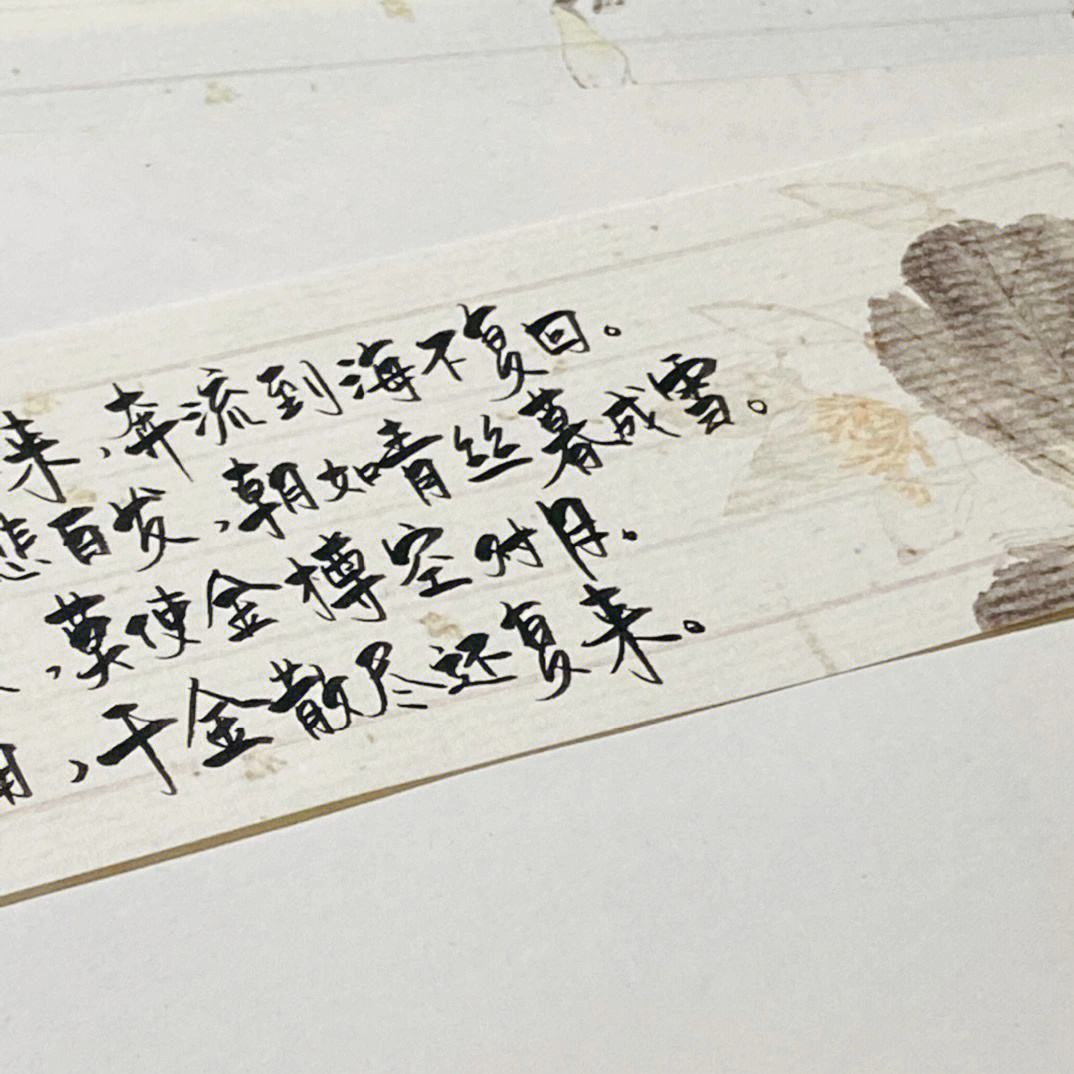 来,奔流到海不复回。
悲百发,朝如青丝暮成雪。
,莫使金樽空对月。
用,千金散尽还复来。